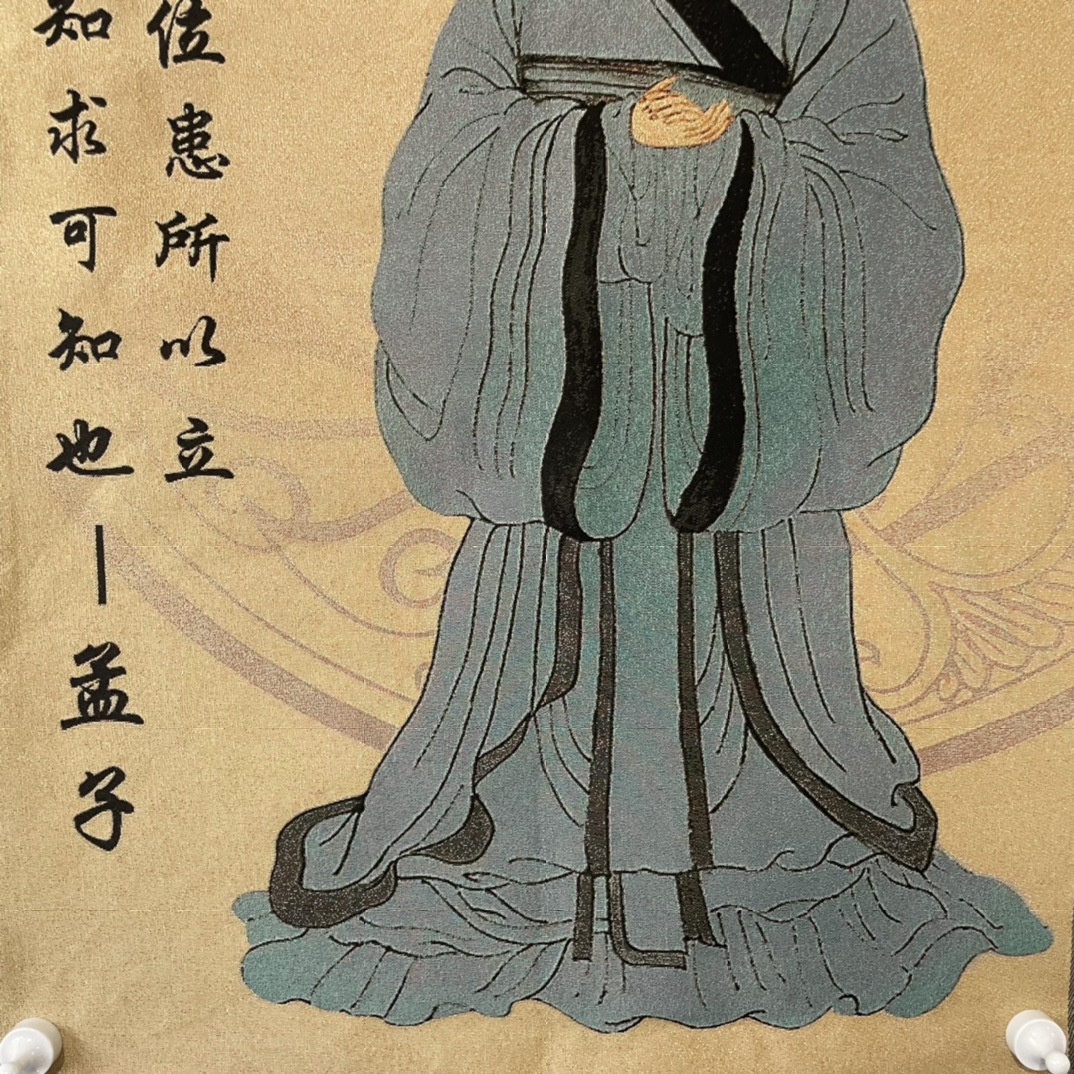 位患所以立
知求可知也—孟子